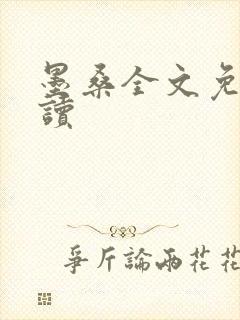 墨桑全文免
讀
爭斤論兩花花